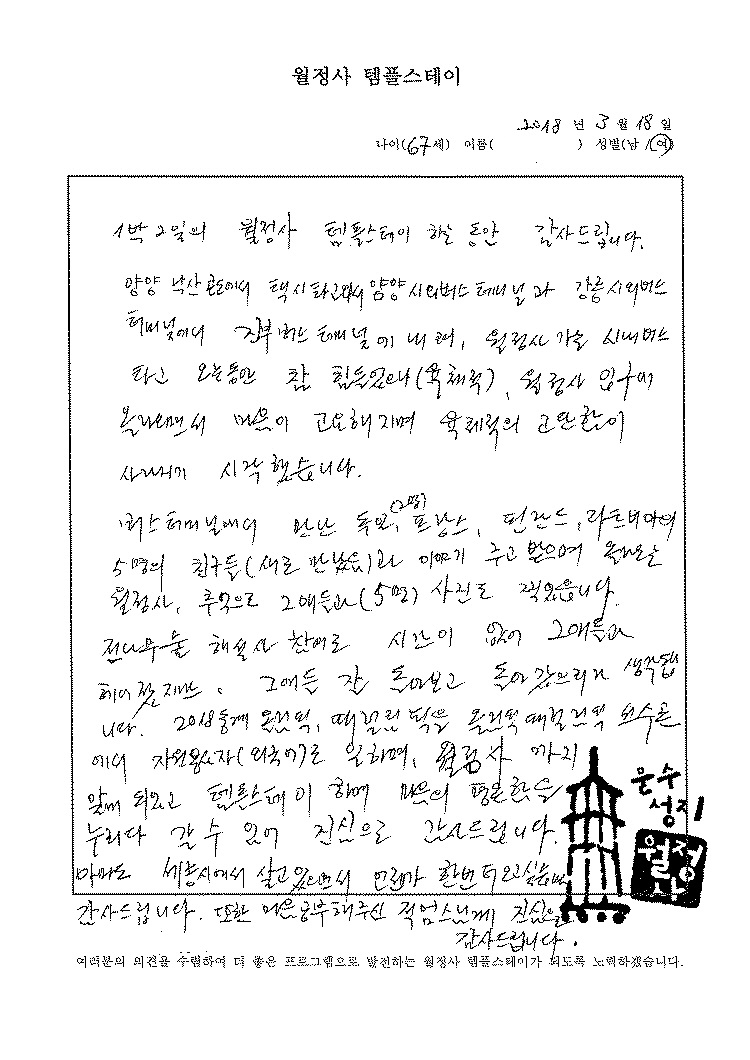 월정사 템플스테이
2018 년 3 월 18 일
나이(67세) 이름( ) 성별(남/여)
1박 2일의 월정사 템플스테이 하는 동안 감사드립니다.
양양 낙산 택시타고와서 양양 시외버스 터미널과 강릉시외버스
터미널에서 진부버스터미널에 내려, 월정사 가을 시내버스
타고 오는동안 참 힘들었으나(육체적), 월정사 입구에
올라오면서 마음이 고요해지며 육체적의 고단함이
사라지기 시작했습니다.
버스터미널에서 만난 독일, (2명) 프랑스, 핀란드, 라트비아의
5명의 친구들(새로 만났음)과 이야기 주고 받으며 올라오는
월정사, 추억으로 그애들과(5명) 사진도 찍었습니다.
전나무숲 해설사 참여로 시간이 없어 그애들과
헤어졌지만, 그애들 잘 돌아보고 돌아갔으리라 생각됩
니다. 2018동계올림픽, 패럴림픽을 올림픽패럴림픽 선수촌
에서 자원봉사자(외국어)로 일하며, 월정사 까지
알게 되었고 템플스테이 함께 마음의 평온함을
누리다 갈 수 있어 진심으로 감사드립니다.
세종시에서 살고있으면서 언젠가 한번 더 오고싶습니다
감사드립니다. 또한 마음공부해주신 적엄스님께 진심으로
감사드립니다.
문수
성지
월정
사
여러분의 의견을 수렴하여 더 좋은 프로그램으로 발전하는 월정사 템플스테이가 되도록 노력하겠습니다.